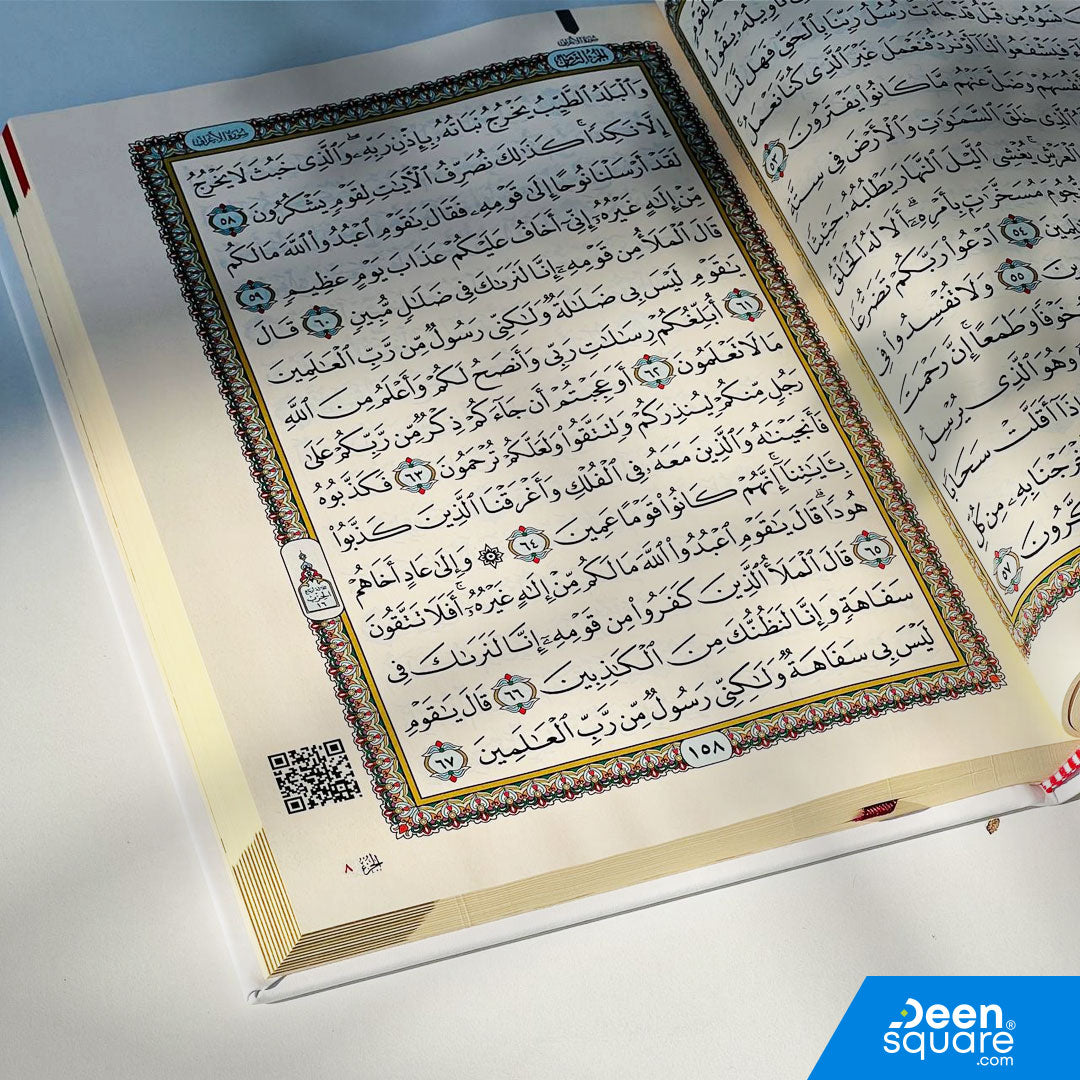 سُورَةُ الأَعْرَافِ
وَٱلْبَلَدُ ٱلطَّيِّبُ يَخْرُجُ نَبَاتُهُۥ بِإِذْنِ رَبِّهِۦ ۖ وَٱلَّذِى خَبُثَ لَا يَخْرُجُ
إِلَّا نَكِدًا ۚ كَذَٰلِكَ نُصَرِّفُ ٱلْـَٔايَٰتِ لِقَوْمٍ يَشْكُرُونَ ٥٨
لَقَدْ أَرْسَلْنَا نُوحًا إِلَىٰ قَوْمِهِۦ فَقَالَ يَٰقَوْمِ ٱعْبُدُوا۟ ٱللَّهَ مَا لَكُم
مِّنْ إِلَٰهٍ غَيْرُهُۥٓ إِنِّىٓ أَخَافُ عَلَيْكُمْ عَذَابَ يَوْمٍ عَظِيمٍ ٥٩
قَالَ ٱلْمَلَأُ مِن قَوْمِهِۦٓ إِنَّا لَنَرَىٰكَ فِى ضَلَٰلٍ مُّبِينٍ ٦٠ قَالَ
يَٰقَوْمِ لَيْسَ بِى ضَلَٰلَةٌ وَلَٰكِنِّى رَسُولٌ مِّن رَّبِّ ٱلْعَٰلَمِينَ
٦١ أُبَلِّغُكُمْ رِسَٰلَٰتِ رَبِّى وَأَنصَحُ لَكُمْ وَأَعْلَمُ مِنَ ٱللَّهِ
مَا لَا تَعْلَمُونَ ٦٢ أَوَعَجِبْتُمْ أَن جَآءَكُمْ ذِكْرٌ مِّن رَّبِّكُمْ عَلَىٰ
رَجُلٍ مِّنكُمْ لِيُنذِرَكُمْ وَلِتَتَّقُوا۟ وَلَعَلَّكُمْ تُرْحَمُونَ ٦٣ فَكَذَّبُوهُ
فَأَنجَيْنَٰهُ وَٱلَّذِينَ مَعَهُۥ فِى ٱلْفُلْكِ وَأَغْرَقْنَا ٱلَّذِينَ كَذَّبُوا۟
بِـَٔايَٰتِنَآ ۚ إِنَّهُمْ كَانُوا۟ قَوْمًا عَمِينَ ٦٤ ۞ وَإِلَىٰ عَادٍ أَخَاهُمْ
هُودًا ۗ قَالَ يَٰقَوْمِ ٱعْبُدُوا۟ ٱللَّهَ مَا لَكُم مِّنْ إِلَٰهٍ غَيْرُهُۥٓ ۚ أَفَلَا تَتَّقُونَ
٦٥ قَالَ ٱلْمَلَأُ ٱلَّذِينَ كَفَرُوا۟ مِن قَوْمِهِۦٓ إِنَّا لَنَرَىٰكَ فِى
سَفَاهَةٍ وَإِنَّا لَنَظُنُّكَ مِنَ ٱلْكَٰذِبِينَ ٦٦ قَالَ يَٰقَوْمِ
لَيْسَ بِى سَفَاهَةٌ وَلَٰكِنِّى رَسُولٌ مِّن رَّبِّ ٱلْعَٰلَمِينَ ٦٧
١٥٨
الجزء ٨
قَدْ جَآءَتْ رُسُلُ رَبِّنَا بِٱلْحَقِّ فَهَل لَّنَا
فَيَشْفَعُوا۟ لَنَآ أَوْ نُرَدُّ فَنَعْمَلَ غَيْرَ ٱلَّذِى كُنَّا نَعْمَلُ
وَضَلَّ عَنْهُم مَّا كَانُوا۟ يَفْتَرُونَ ٥٣
ٱلَّذِى خَلَقَ ٱلسَّمَٰوَٰتِ وَٱلْأَرْضَ فِى سِتَّةِ
ٱلْعَرْشِ يُغْشِى ٱلَّيْلَ ٱلنَّهَارَ يَطْلُبُهُۥ حَثِيثًا
مُسَخَّرَٰتٍۭ بِأَمْرِهِۦٓ ۗ أَلَا لَهُ ٱلْخَلْقُ
٥٤ ٱدْعُوا۟ رَبَّكُمْ تَضَرُّعًا
٥٥ وَلَا تُفْسِدُوا۟ فِى
خَوْفًا وَطَمَعًا ۚ إِنَّ رَحْمَتَ
وَهُوَ ٱلَّذِى يُرْسِلُ
إِذَآ أَقَلَّتْ سَحَابًا
بِهِۦ مِن كُلِّ
٥٧
Deen
square®
.com